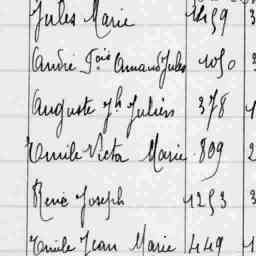 Jules Marie 1459 3
André Fois Armand Jules 1050 3
Auguste Jh Julien 378 1
Emile Victor Marie 809 2
René Joseph 1253 3
Emile Jean Marie 449 1